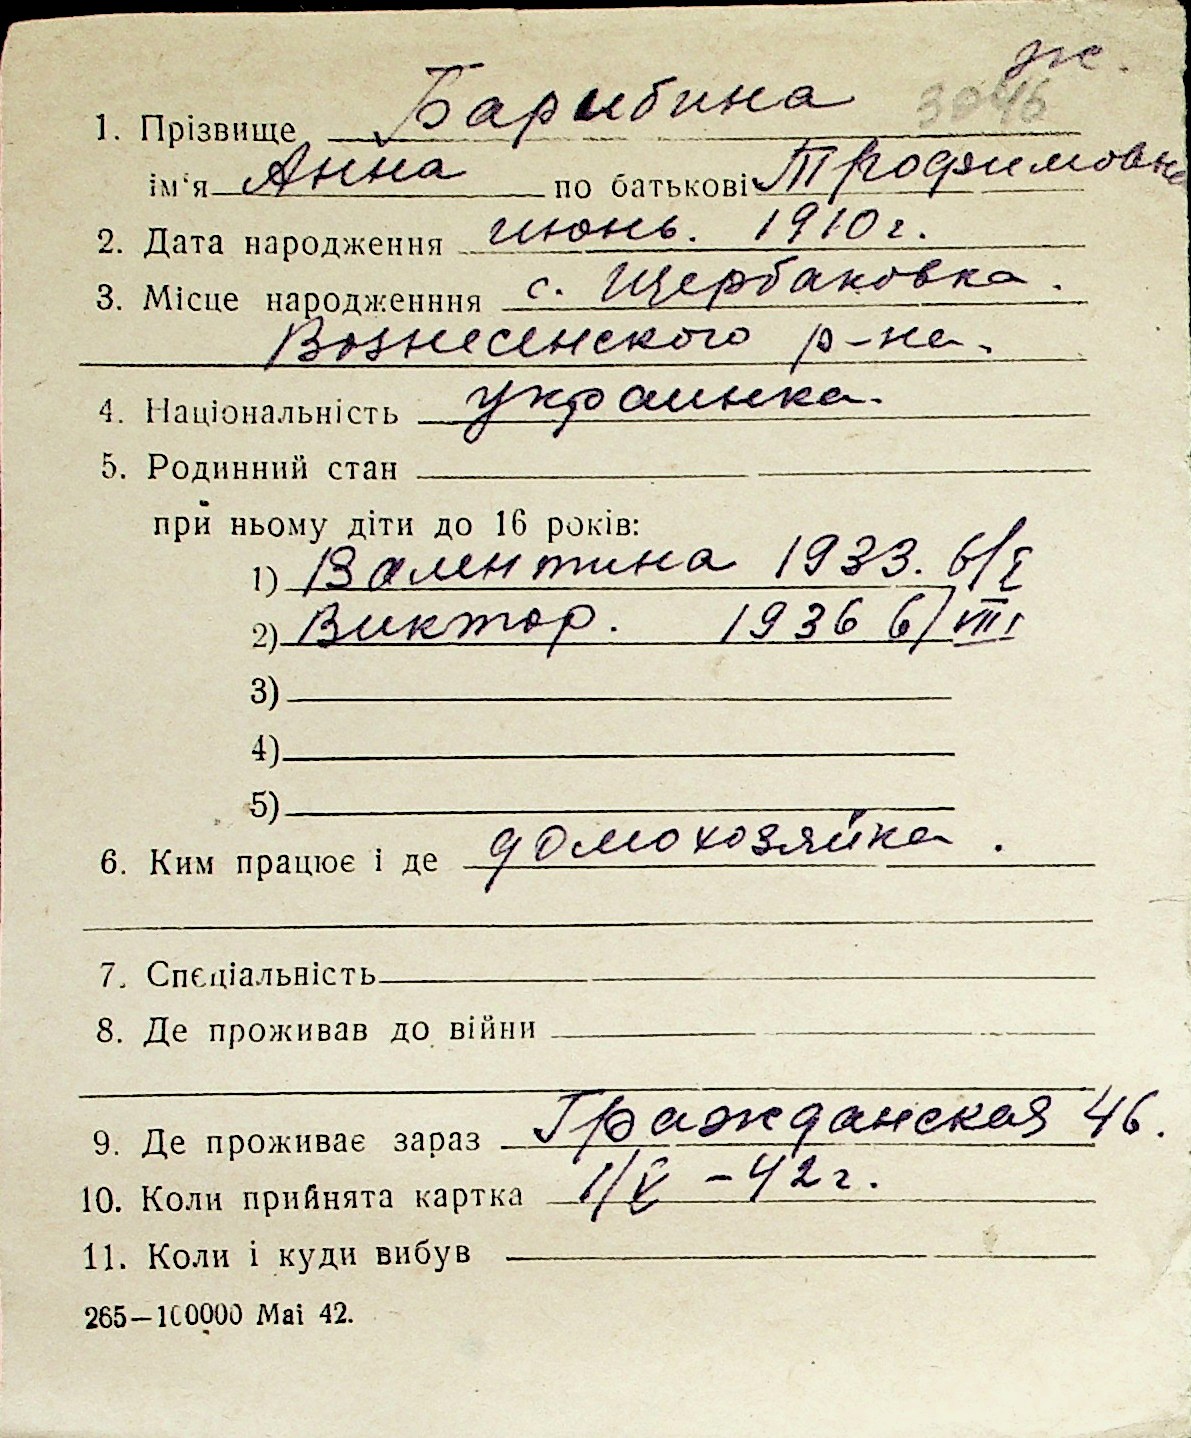 ж.
3046
1. Прізвище Барибина
ім'я Анна по батькові Трофимовна
2. Дата народження июнь. 1910 г.
3. Місце народженння с. Щербаковка.
Вознесенского р-на.
4. Національність украинка.
5. Родинний стан
при ньому діти до 16 років:
1) Валентина 1933. 6/I
2) Виктор. 1936 6/VIII
3)
4)
5)
6. Ким працює і де домохозяйка.
7. Спєціальність
8. Де проживав до війни
9. Де проживає зараз Гражданская 46.
10. Коли прийнята картка 1/V – 42 г.
11. Коли і куди вибув
265—100000 Mai 42.